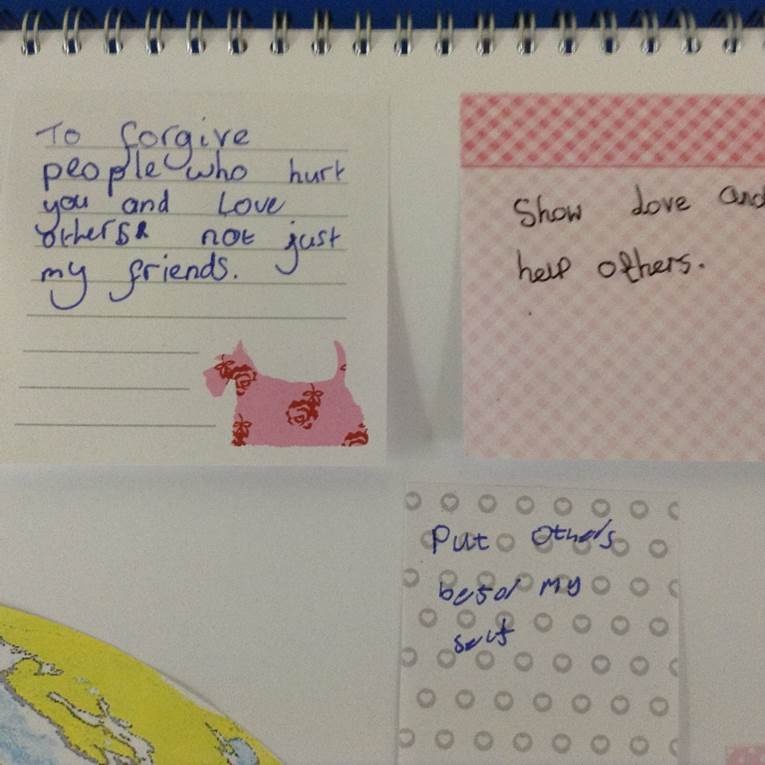 To forgive
people who hurt
you and Love
others not just
my friends.
Show Love and
help others.
Put others
befor my
self